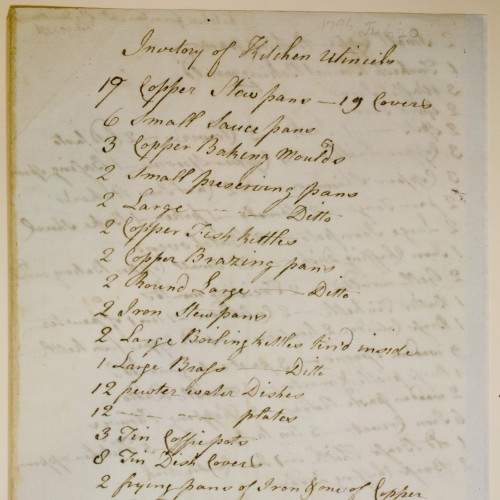 Invetory of Kitchen Utincels
19 Copper Stewpans — 19 Covers
6 Small Sauce pans
3 Copper Baking Moulds
2 Small preserving pans
2 Large — — Ditto
2 Copper Fish kettles
2 Copper Brazing pans
2 Round Large — Ditto
2 Iron Stewpans
2 Large Boiling kettles tin'd inside
1 Large Brass — Ditto
12 pewter water Dishes
12 — — — plates
3 Tin Coffie pots
8 Tin Dish Covers
2 frying pans of Iron & one of Copper